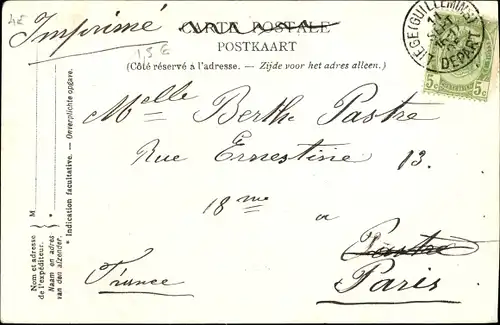 4E
Imprimé
15E
CARTE POSTALE
POSTKAART
(Côté réservé à l'adresse. – Zijde voor het adres alleen.)
LIEGE (GUILLEMINS)
11
DEPART
5c 5c
Melle Berthe Pastre
Rue Ernestine 13.
18me
a
Pastre
Paris
France
* Indication facultative. — Onverplichte opgave.
M *
Nom et adresse
de l'expéditeur.
Naam en adres
van den afzender.